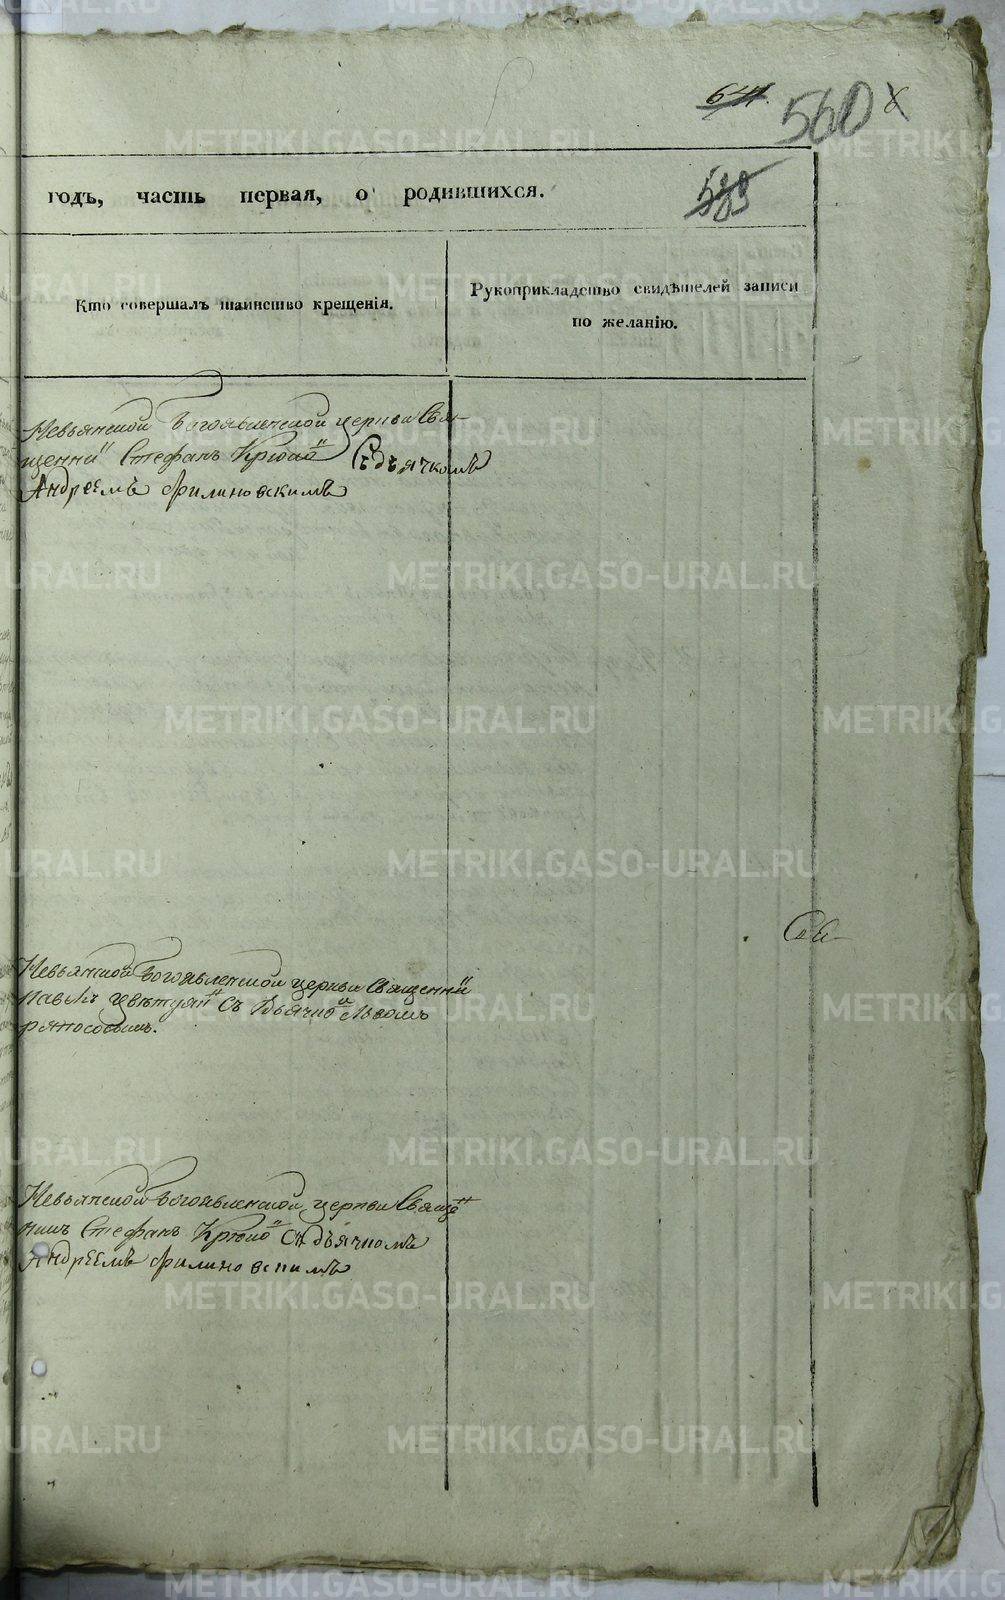 560
годъ, часть первая, о родившихся.
Кто совершалъ таинство крещенія.
Рукоприкладство свидѣтелей записи
по желанію.
Невьянской Богоявленской церкви Свя-
щенни Стефанъ Крюко Съ дьячкомъ
Андреемъ Филиновскимъ
Невьянской Богоявленской церкви Священни
Павелъ Съ дьячко Львомъ
Невьянской Богоявленской церкви Свяще
никъ Стефанъ Крюко Съ дьячкомъ
Андреемъ Филиновскимъ
METRIKI.GASO-URAL.RU